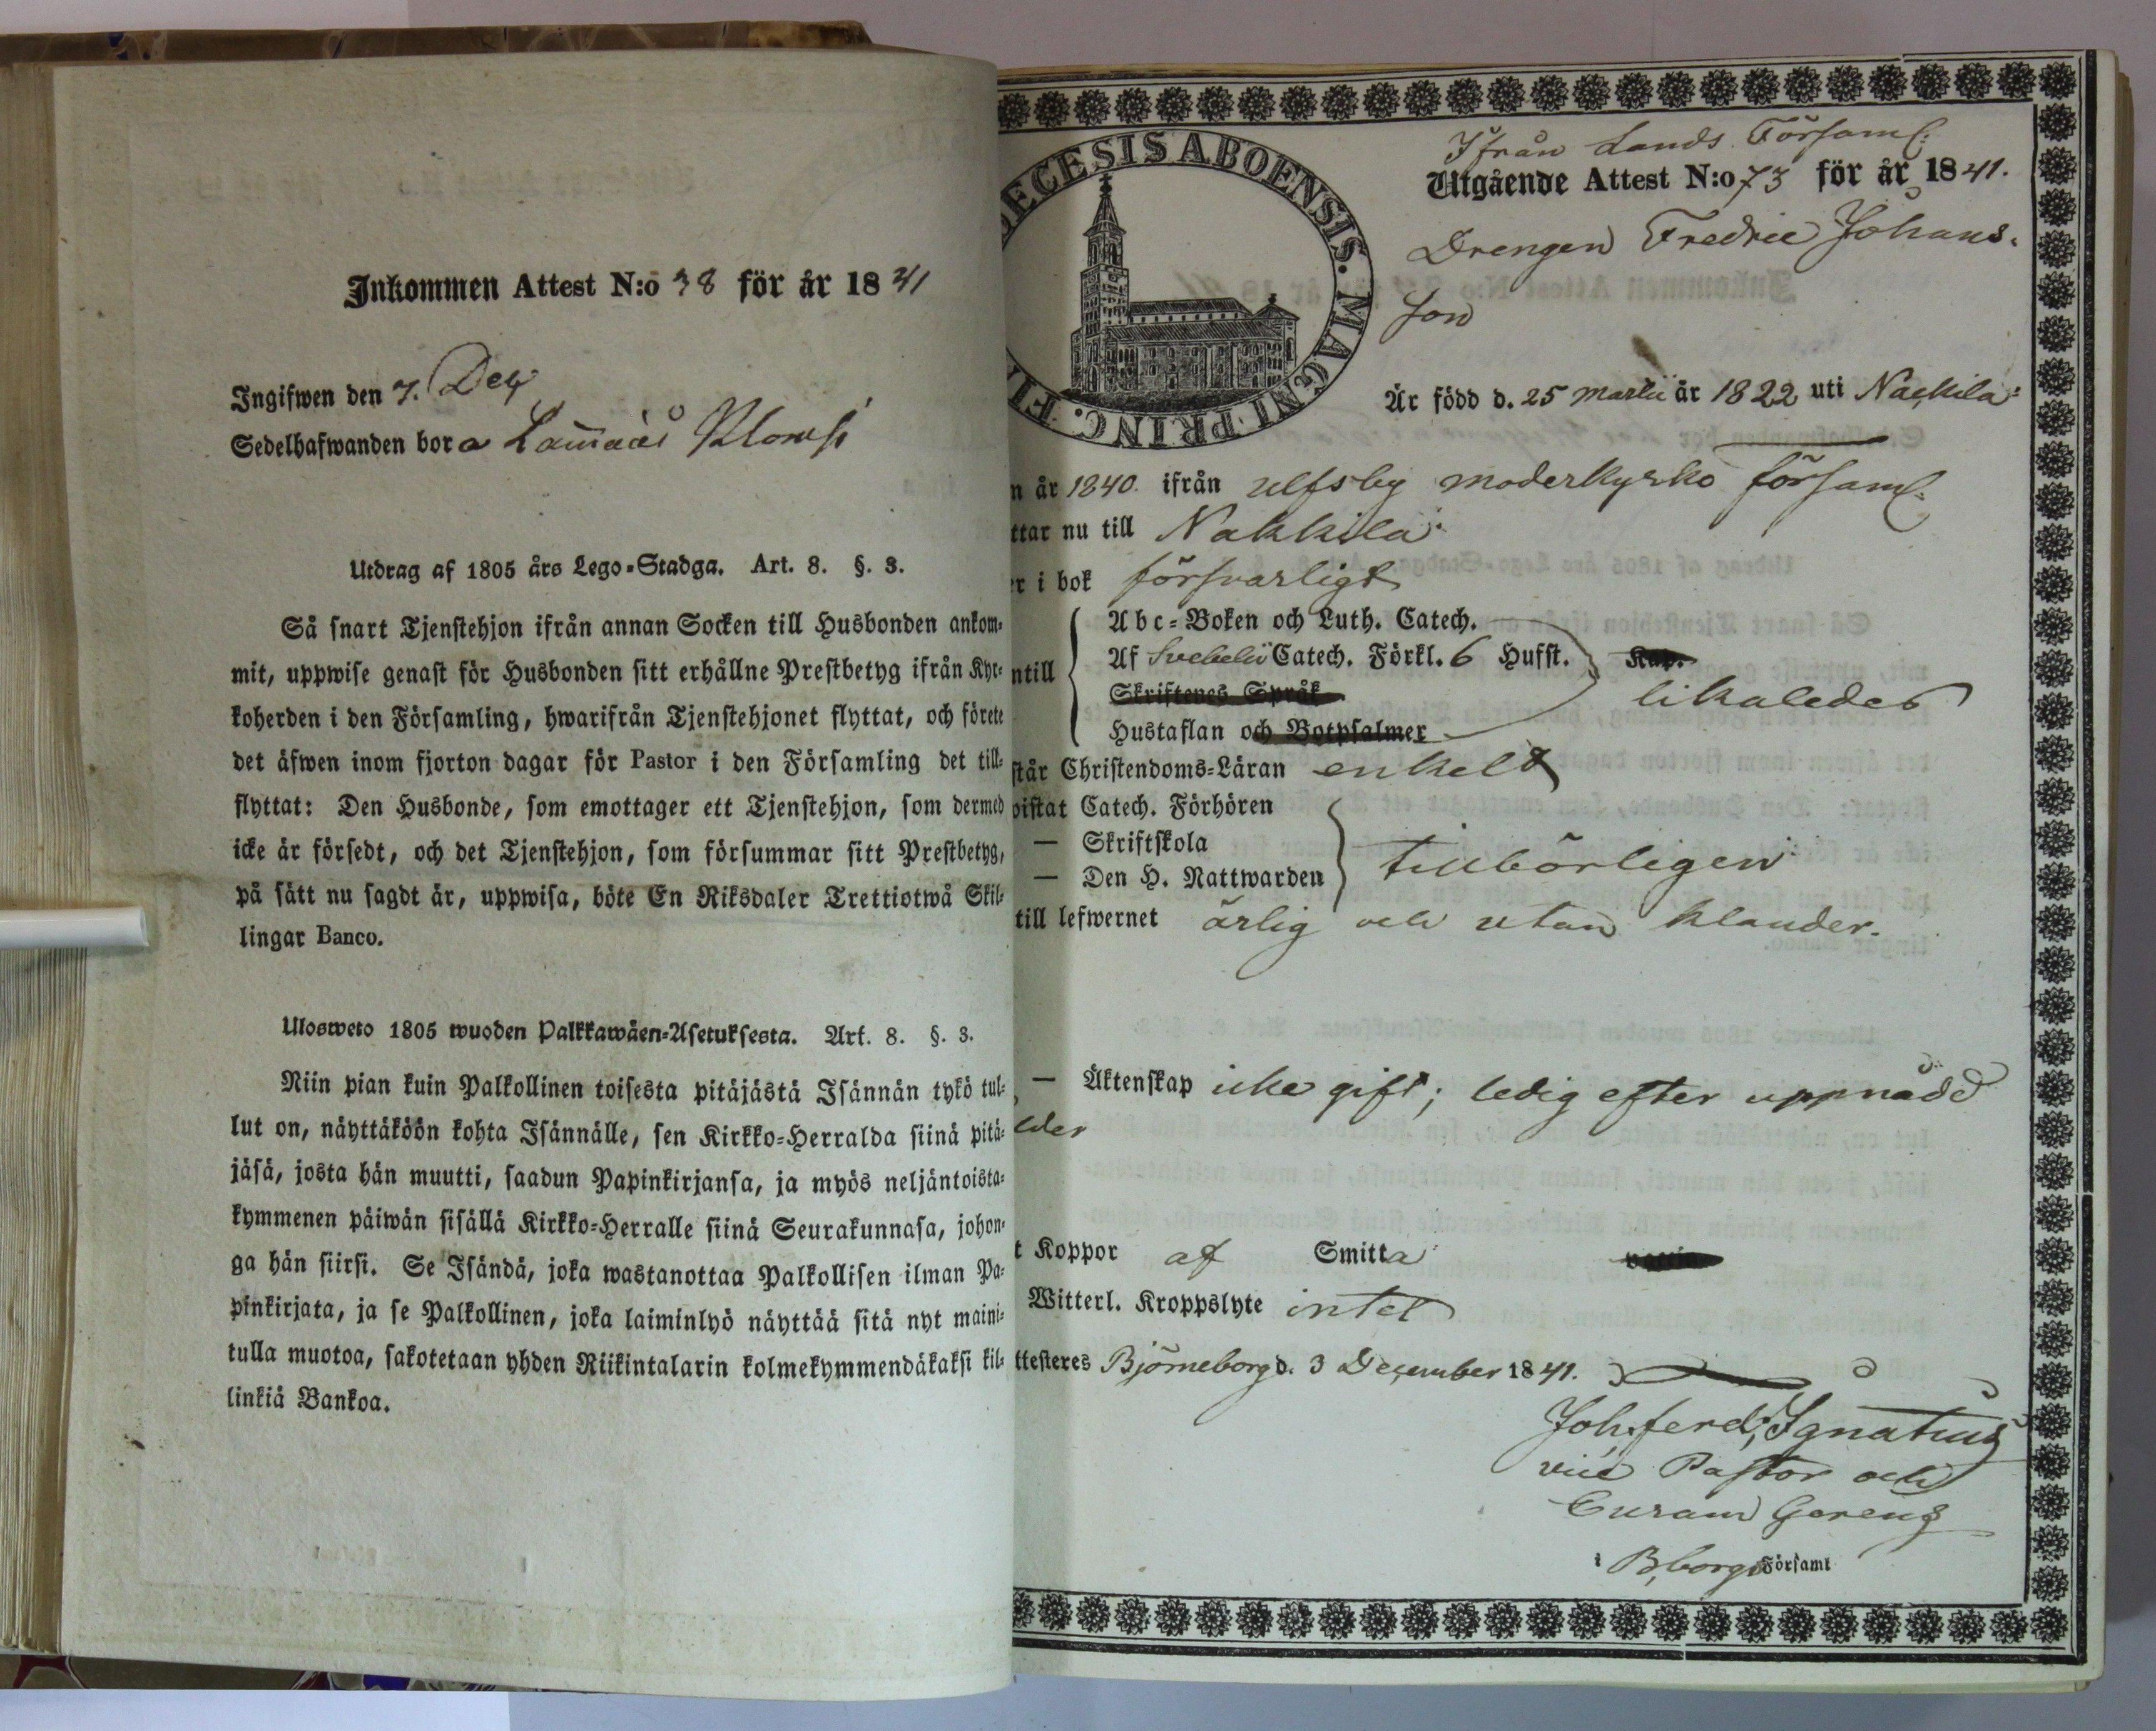 Inkommen Attest N:o 38 för år 1841
Ingifwen den 7. Dec
Sedelhafwanden bor a
Utdrag af 1805 års Lego-Stadga. Art. 8. §. 3.
Så snart Tjenstehjon ifrån annan Socken till Husbonden ankom-
mit, uppwise genast för Husbonden sitt erhållne Prestbetyg ifrån Kyr-
koherden i den Församling, hwarifrån Tjenstehjonet flyttat, och förete
det äfwen inom fjorton dagar för Pastor i den Församling det till-
flyttat: Den Husbonde, som emottager ett Tjenstehjon, som dermed
icke är försedt, och det Tjenstehjon, som försummar sitt Prestbetyg,
på sätt nu sagdt är, uppwisa, böte En Riksdaler Trettiotwå Skil-
lingar Banco.
Ulosweto 1805 wuoden Palkkawäen-Asetuksesta. Art. 8. §. 3.
Niin pian kuin Palkollinen toisesta pitäjästä Isännän tykö tul-
lut on, näyttäköön kohta Isännälle, sen Kirkko-Herralda siinä pitä-
jäsä, josta hän muutti, saadun Papinkirjansa, ja myös neljäntoista-
kymmenen päiwän sisällä Kirkko-Herralle siinä Seurakunnasa, johon-
ga hän siirsi. Se Isändä, joka wastanottaa Palkollisen ilman Pa-
pinkirjata, ja se Palkollinen, joka laiminlyö näyttää sitä nyt maini-
tulla muotoa, sakotetaan yhden Riikintalarin kolmekymmendäkaksi kil-
linkiä Bankoa.
ECESIS ABOENSIS. MAGNI PRINC. FI
Ifrån Lands Församl:
Utgående Attest N:o 73 för år 1841.
Drengen Fredric Johans-
son
Är född d. 25 Martii år 1822 uti Nackila
n år 1840. ifrån Ulfsby moderkyrko församl:
ttar nu till Nakkila
r i bok försvarligt
ntill
Abc-Boken och Luth. Catech.
Af Svebelii Catech. Förkl. 6 Hufst. Kap.
Skriftenes Språk
likaledes
Hustaflan och Botpsalmer
står Christendoms-Läran enkelt
wistat Catech. Förhören
— Skriftskola
— Den H. Nattwarden
tillbörligen
till lefwernet ärlig och utan klander.
— Äktenskap icke gift; ledig efter uppnådd
lder
t Koppor af Smitta
Witterl. Kroppslyte intet
ttesteres Björneborg d. 3 December 1841.
Joh. ferd; Ignatius
vice Pastor och
Curam Gerens
i B,borgs Församl